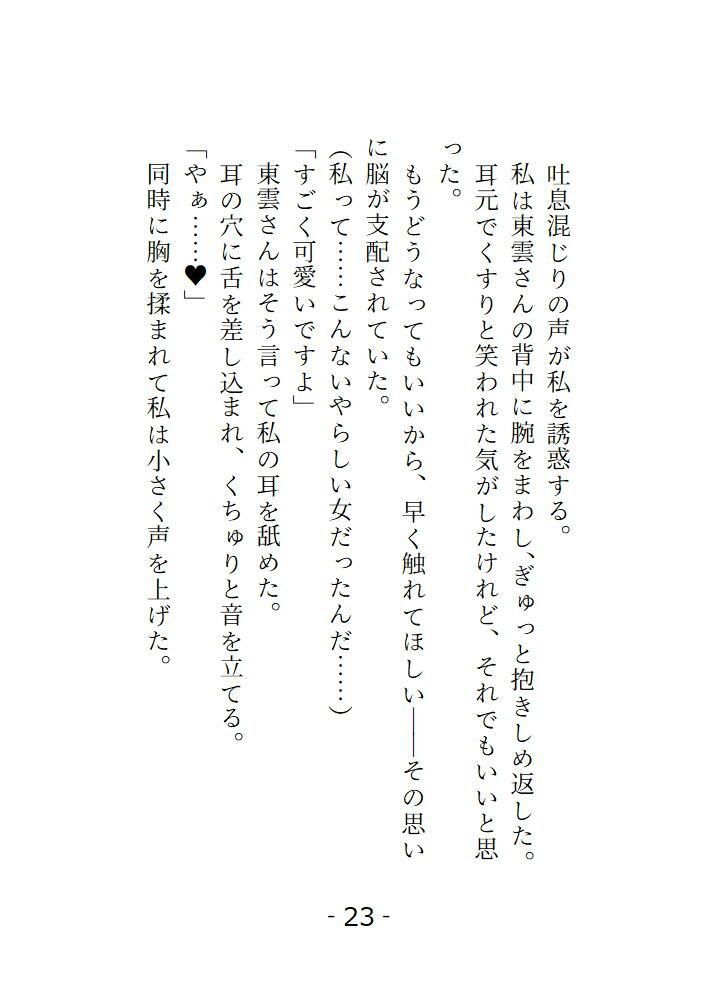 吐息混じりの声が私を誘惑する。
私は東雲さんの背中に腕をまわし、ぎゅっと抱きしめ返した。
耳元でくすりと笑われた気がしたけれど、それでもいいと思
った。
もうどうなってもいいから、早く触れてほしい――その思い
に脳が支配されていた。
(私って……こんないやらしい女だったんだ……)
「すごく可愛いですよ」
東雲さんはそう言って私の耳を舐めた。
耳の穴に舌を差し込まれ、くちゅりと音を立てる。
「やぁ……♥」
同時に胸を揉まれて私は小さく声を上げた。
- 23 -